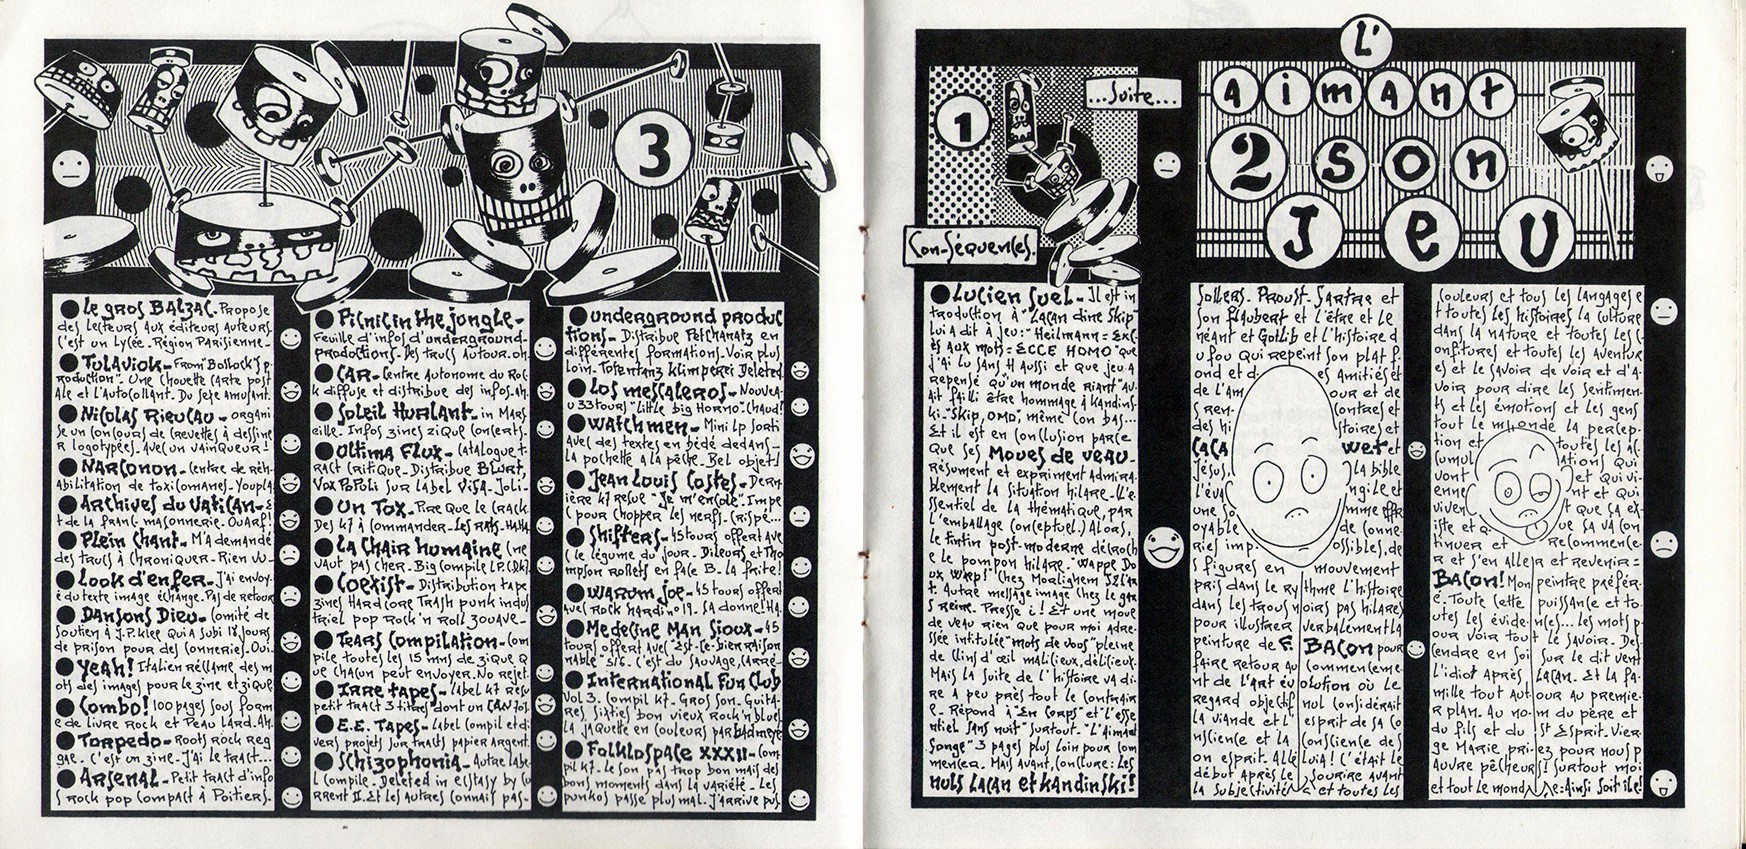 3
Le gros BALZAC. Propose
des lecteurs aux éditeurs auteurs
c'est un lysée. Région Parisienne.
TULAVIOK - From "Bollock's p
roduction". Une chouette carte post
Ale et l'autocollant. Du sexe amusant.
Nicolas Rieucau - organi
se un concours de crevettes à dessine
r logotypées. Avec un vainqueur!
NARCONON. centre de réh
Abilitation de toxicomanes. Youpla
Archives du Vatican - E
t de la franc-masonnerie. Ouarf!
Plein Chant - M'a demandé
des trucs à chroniquer. Rien vu...
Look d'enfer - J'ai envoy
é du texte image échange. Pas de retour
DANSONS DIEU - comité de
soutien à J.P. Klee qui a subi 18 jours
de prison pour des conneries. Oui.
Yeah! Italien réclame des m
ots des images pour le zine et zique
Combo! 100 pages sous form
e de livre Rock et Peau Lard. Ah.
Torpedo - Roots Rock Reg
gae. C'est un zine. J'ai le tract...
Arsenal - Petit tract d'info
s Rock pop compact à Poitiers.
Picnic in the jongle -
Feuille d'infos d'underground
productions. Des trucs autour. oh.
CAR - Centre Autonome du Roc
k diffuse et distribue des infos. Ah.
Soleil Hurlant - in Mars
eille. Infos zines zique concerts.
Ultima Flux - Catalogue t
ract critique - Distribue Blurt,
Vox Populi sur label VISA. Joli.
Un Tox - Pire que le crack
Des K7 à commander - Les Rats. HAHA
LA CHAIR humaine (ne
vaut pas cher. Big compile LP. (Dk)
Coexist - Distribution tape
zines Hard core Trash punk indu
striel pop Rock'n Roll zouave -
Tears Compilation - (om
pile toutes les 15 mns de zique q
ue chacun peut envoyer. No rejet.
Irre tapes - label K7 reçu
petit tract 3 titres dont un CAN 70s.
E.E. Tapes - label compil et di
vers projets sur tracts papier argent.
Schizophonia - Autre labe
l compile. Deleted in ecstasy by cu
rrent II. Et les autres connais pas -
underground produc
tions - Distribue Petchanatz en
différentes formations. Voir plus
loin. Totentanz Klimperei Deleted
Los mescaleros - Nouvea
u 33 tours "Little big Horno". Chaud!
Watchmen - Mini Lp sorti
Avec des textes en bédé dedans -
la pochette à la pêche. Bel objet!
Jean Louis Costes - Dern
ière K7 reçue "Je m'encule". Impe
c pour chopper les nerfs. Crispé...
Shifters - 45 tours offert ave
c le légume du jour - Dileurs et Tho
mpson Rollets en face B. La frite!
WARUM joe - 45 tours offert
avec Rock Hardi no 19. Sa donne! HA
Medecine Man Sioux - 45
tours offert avec "Est-ce-bien raison
nable" 5/6. C'est du sauvage, carré.
International Fun Club
Vol 3. Compil K7. Gros son. Guita
res, sixties bon vieux Rock'n blues
la jaquette en couleurs par badmeye
Folklospace XXXII - (om
pil K7. Le son pas trop bon mais des
bons moments dans la variété - Les
punkos passe plus mal. J'arrive pus.
1
...Suite...
Con-Séquences.
L'
Aimant
2 son
Jeu
Lucien Suel - Il est in
troduction à "Lacan dine Skip"
lui a dit à jeu: "Heilmann = Exc
ès aux mots = ECCE HOMO" que
j'ai lu sans H aussi et que jeu a
repensé qu'"un monde riant" av
ait failli être hommage à Kandins
ki. "Skip, OMO", même con bas...
Et il est en conclusion parce
que ses Moues de veau
résument et expriment admira
blement la situation hilare. (L'e
ssentiel de la thématique, par
l'emballage conceptuel.) Alors,
le tintin post-moderne décroch
e le pompon hilare. "Wappe Do
ux Wep!" chez Morlighem
t. Autre message image chez le gar
s Reine. Presse i! Et une moue
de veau rien que pour moi adre-
ssée intitulée "mots de vous" pleine
de clins d'œil malicieux, délicieux.
Mais la suite de l'histoire va di
re à peu près tout le contrair
e. Répond à "En Corps" et "l'esse
ntiel sans nuit" surtout. "L'Aimant
Songe" 3 pages plus loin pour com
mencer. Mais avant, conclure: Les
nuls Lacan et Kandinski!
Sollers. Proust. Sartre et
son Flaubert et l'être et le
néant et Gotlib et l'histoire d
u fou qui repeint son plaf
ond et d es Amitiés et
de l'am our et de
s ren contres et
des hi stoires et
CACA Wet et
Jésus, la bible
l'éva ngile et
une so mme effr
oyable de conne
ries imp ossibles, de
s figures en mouvement
pris dans le ry thme l'histoire
dans les trous n oirs pas hilares
pour illustrer verbalement la
peinture de F. BACON pour
faire retour au commenceme
nt de l'Art év olution où le
regard objectif nul considérait
la viande et l' esprit de sa co
nscience et la conscience des
on esprit. Alle luia! C'était le
début après le sourire avant
la subjectivité et toutes les
couleurs et tous les langages e
t toutes les histoires la culture
dans la nature et toutes les c
onfitures et toutes les aventur
es et le savoir de voir et d'a-
voir pour dire les sentimen
ts et les émotions et les gens
tout le monde la percep-
tion et toutes les ac
cumul ations qui
vont et qui vi
enne nt et qui
vivent et que sa ex
iste et que sa va con
tinuer et recommence-
r et s'en aller et revenir =
BACON! Mon peintre préfér-
é. Toute cette puissance et to-
utes les évide- nces... les mots p-
our voir tout le savoir. Des-
cendre en soi sur le dit vent
l'idiot après Lacan. Et la fa-
mille tout aut- our au premie-
r plan. Au no- m du père et
du fils et du st Esprit. Vier-
ge Marie pri- ez pour nous p
auvre pêcheurs! Surtout moi
et tout le mond e = Ainsi soit ile!